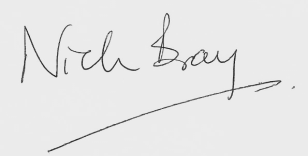 Nick Bray